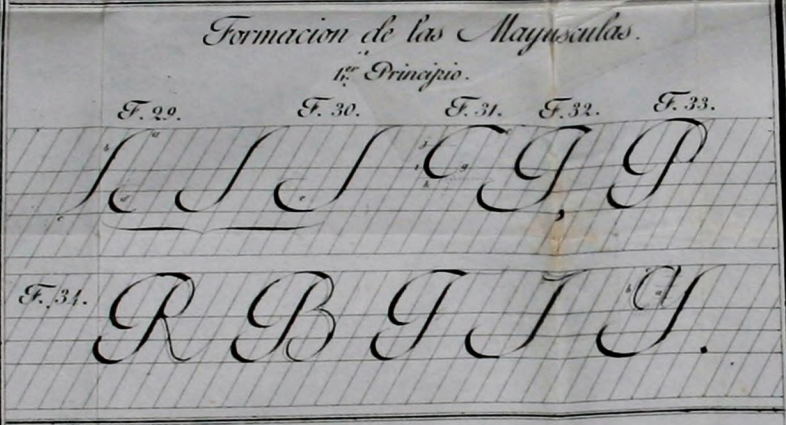 Formacion de las Mayusculas.
1.er Principio.
F. 29. F. 30. F. 31. F. 32. F. 33.
T, P
F. 34. R B T I Y.